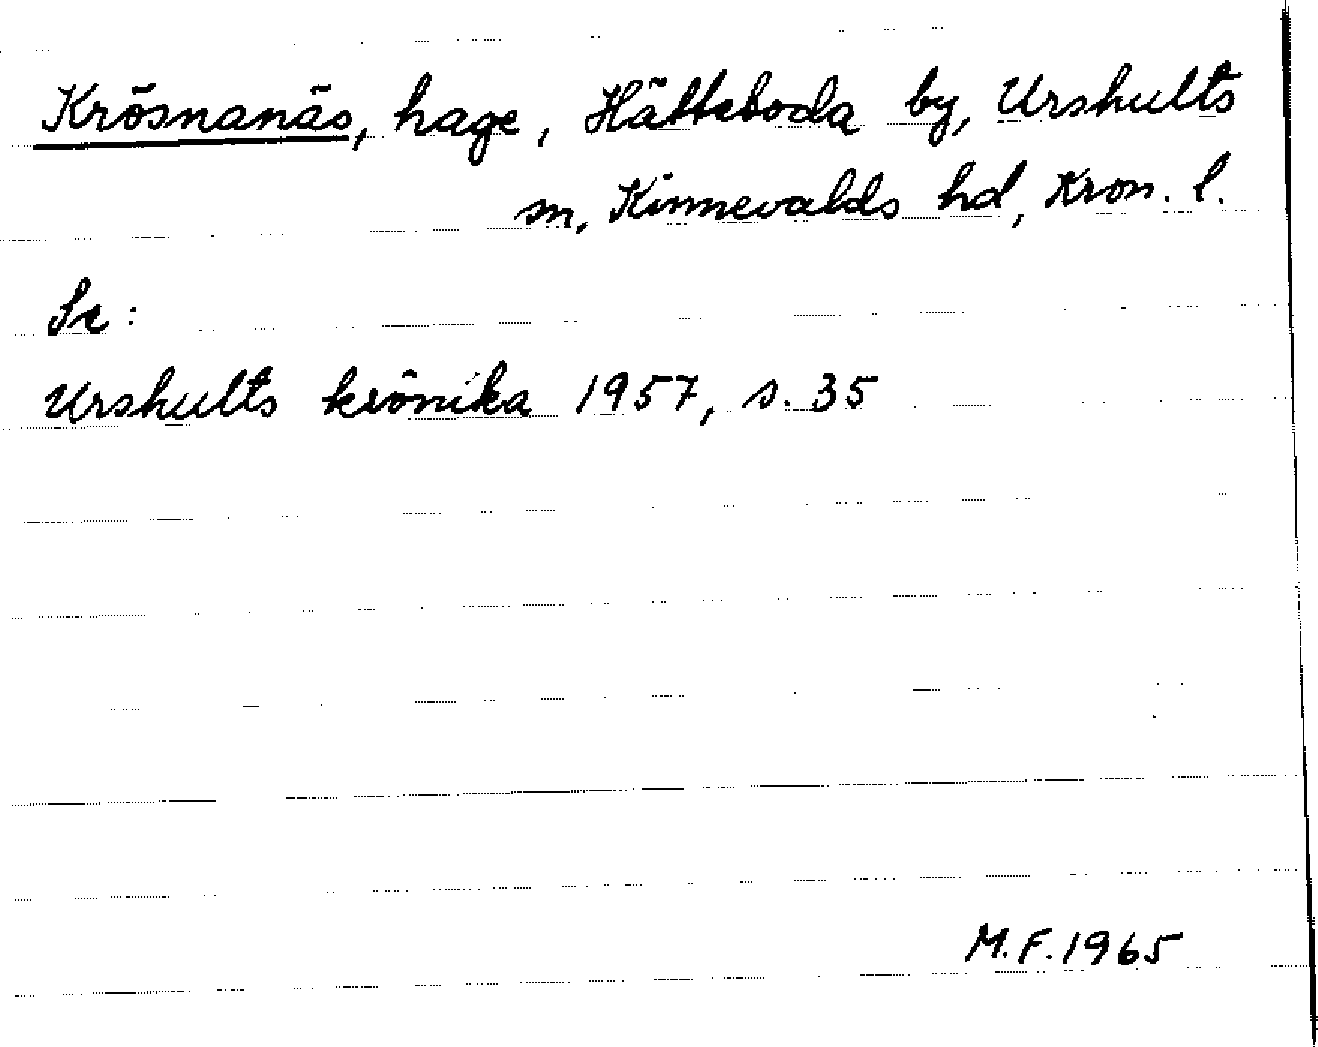 Krösnanäs, hage, Hätteboda by, Urshults
sn, Kinnevalds hd, Kron. l.
Se:
Urshults krönika 1957, s. 35
M.F. 1965